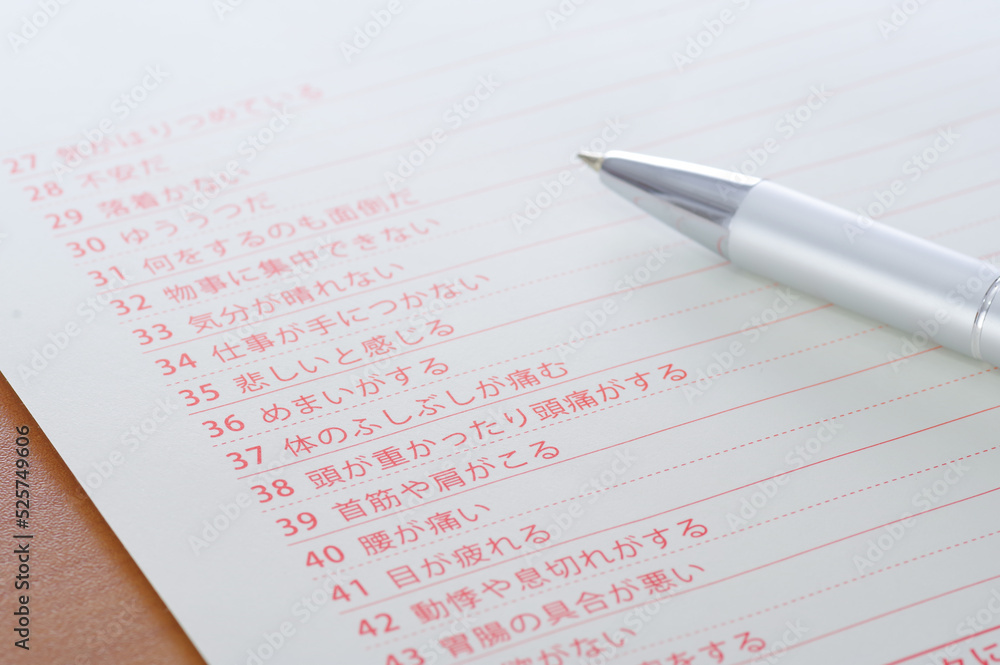 27 気がはりつめている
28 不安だ
29 落着かない
30 ゆううつだ
31 何をするのも面倒だ
32 物事に集中できない
33 気分が晴れない
34 仕事が手につかない
35 悲しいと感じる
36 めまいがする
37 体のふしぶしが痛む
38 頭が重かったり頭痛がする
39 首筋や肩がこる
40 腰が痛い
41 目が疲れる
42 動悸や息切れがする
43 胃腸の具合が悪い
がない
をする
に
Adobe Stock | #525749606